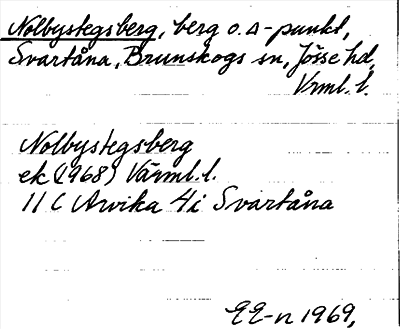 Nolbystegsberg, berg o. ∆-punkt,
Svartåna, Brunskogs sn, Jösse hd,
Vrml. l.
Nolbystegsberg
ek (1968) Värml. l.
11 C Arvika 4i Svartåna
EE-n 1969,